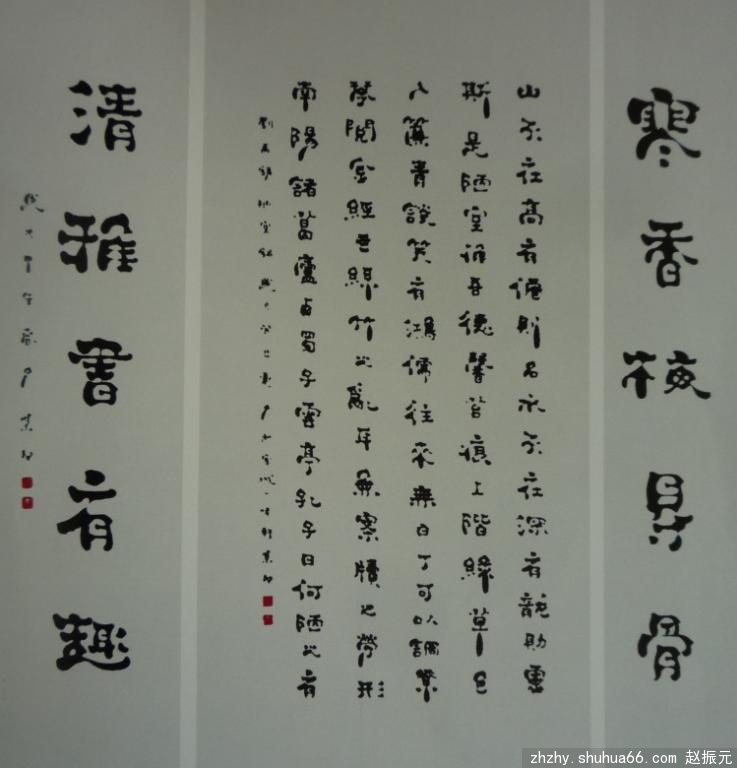 寒香梅具骨
山不在高有僊則名水不在深有龍則靈
斯是陋室惟吾德馨苔痕上階綠草色
入簾青談笑有鴻儒往來無白丁可以調素
琴閱金經無絲竹之亂耳無案牘之勞形
南陽諸葛廬西蜀子雲亭孔子曰何陋之有
劉禹錫陋室銘歲次癸巳
清雅書有趣
歲次甲午
zhzhy.shuhua66.com 赵振元